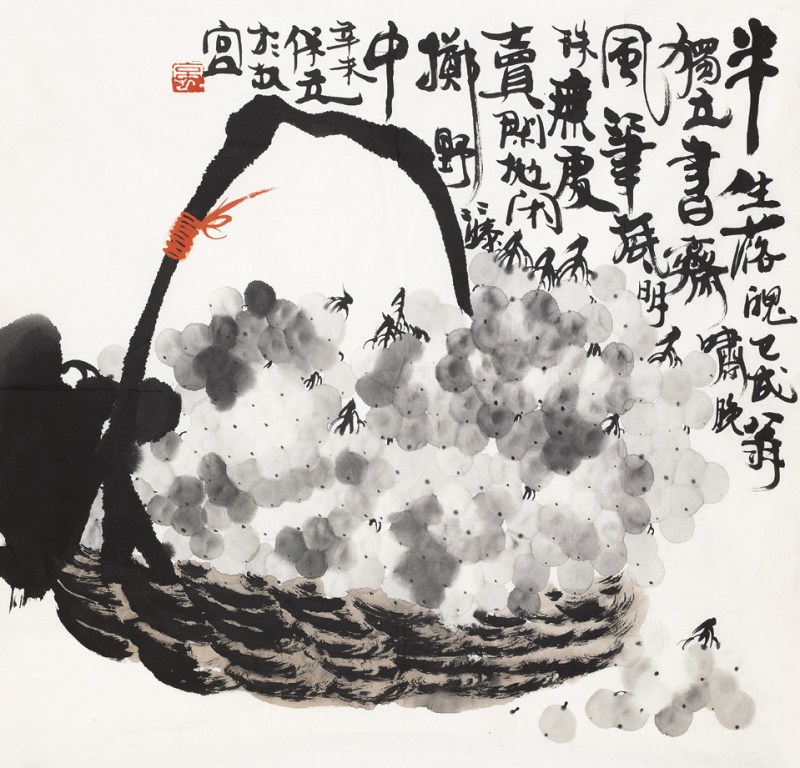 半生落魄已成翁
獨立書齋嘯晚
風筆底明
珠無處
賣閒抛閒
擲野藤
中
辛未
保立
於故
宮